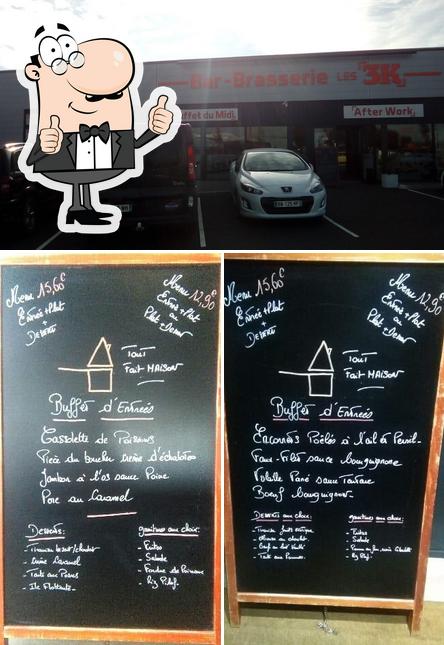 Bar-Brasserie LES "3K"
Buffet du Midi
"After Work"
Menu 15,60€
Entrée+Plat
+
Dessert
Menu 12,90€
Entrée+Plat
ou
Plat+Dessert
TOUT
Fait MAISON
Buffet d'Entrées
Cassolette de Poissons
Pièce du boucher crème d'échalotes
Jambon à l'os sauce
Porc au Caramel
Desserts:
- Tiramisu
- Crème Caramel
- Tarte aux Poires
- Ile Flottante
garnitures au choix:
- Frites
- Salade
- Fondue de Poireaux
- Riz Pilaf
Menu 15,60€
Entrée+Plat
+
Dessert
Menu 12,90€
Entrée+Plat
ou
Plat+Dessert
TOUT
Fait MAISON
Buffet d'Entrées
Poêlés à l'ail et Persil
Faux-Filet sauce bourguignonne
Volaille Pané sauce Tartare
Boeuf bourguignon
Desserts au choix:
- Tarte aux Pommes
garnitures au choix:
- Frites
- Salade
- Riz Pilaf